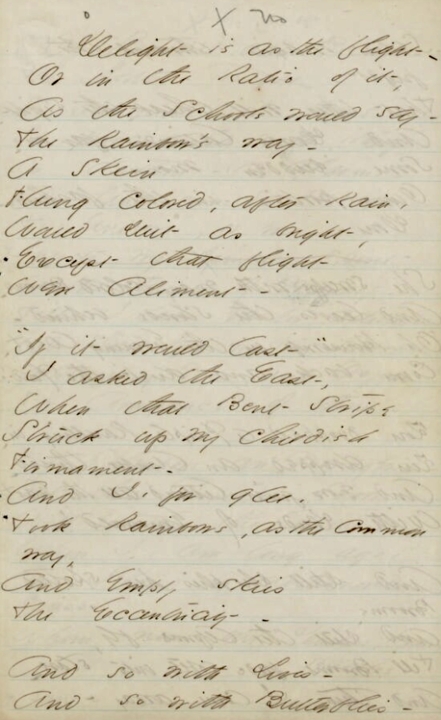 x no
Delight is as the flight -
Or in the Ratio of it,
As the Schools would say -
The Rainbow's way -
A Skein
Flung colored, after Rain,
Would suit as bright,
Except that flight
Were Aliment -

"If it would last"
I asked the East,
When that Bent Stripe
Struck up my childish
Firmament -
And I, for glee,
Took Rainbows, as the common
way,
And empty skies
The Eccentricity -

And so with Lives -
And so with Butterflies -